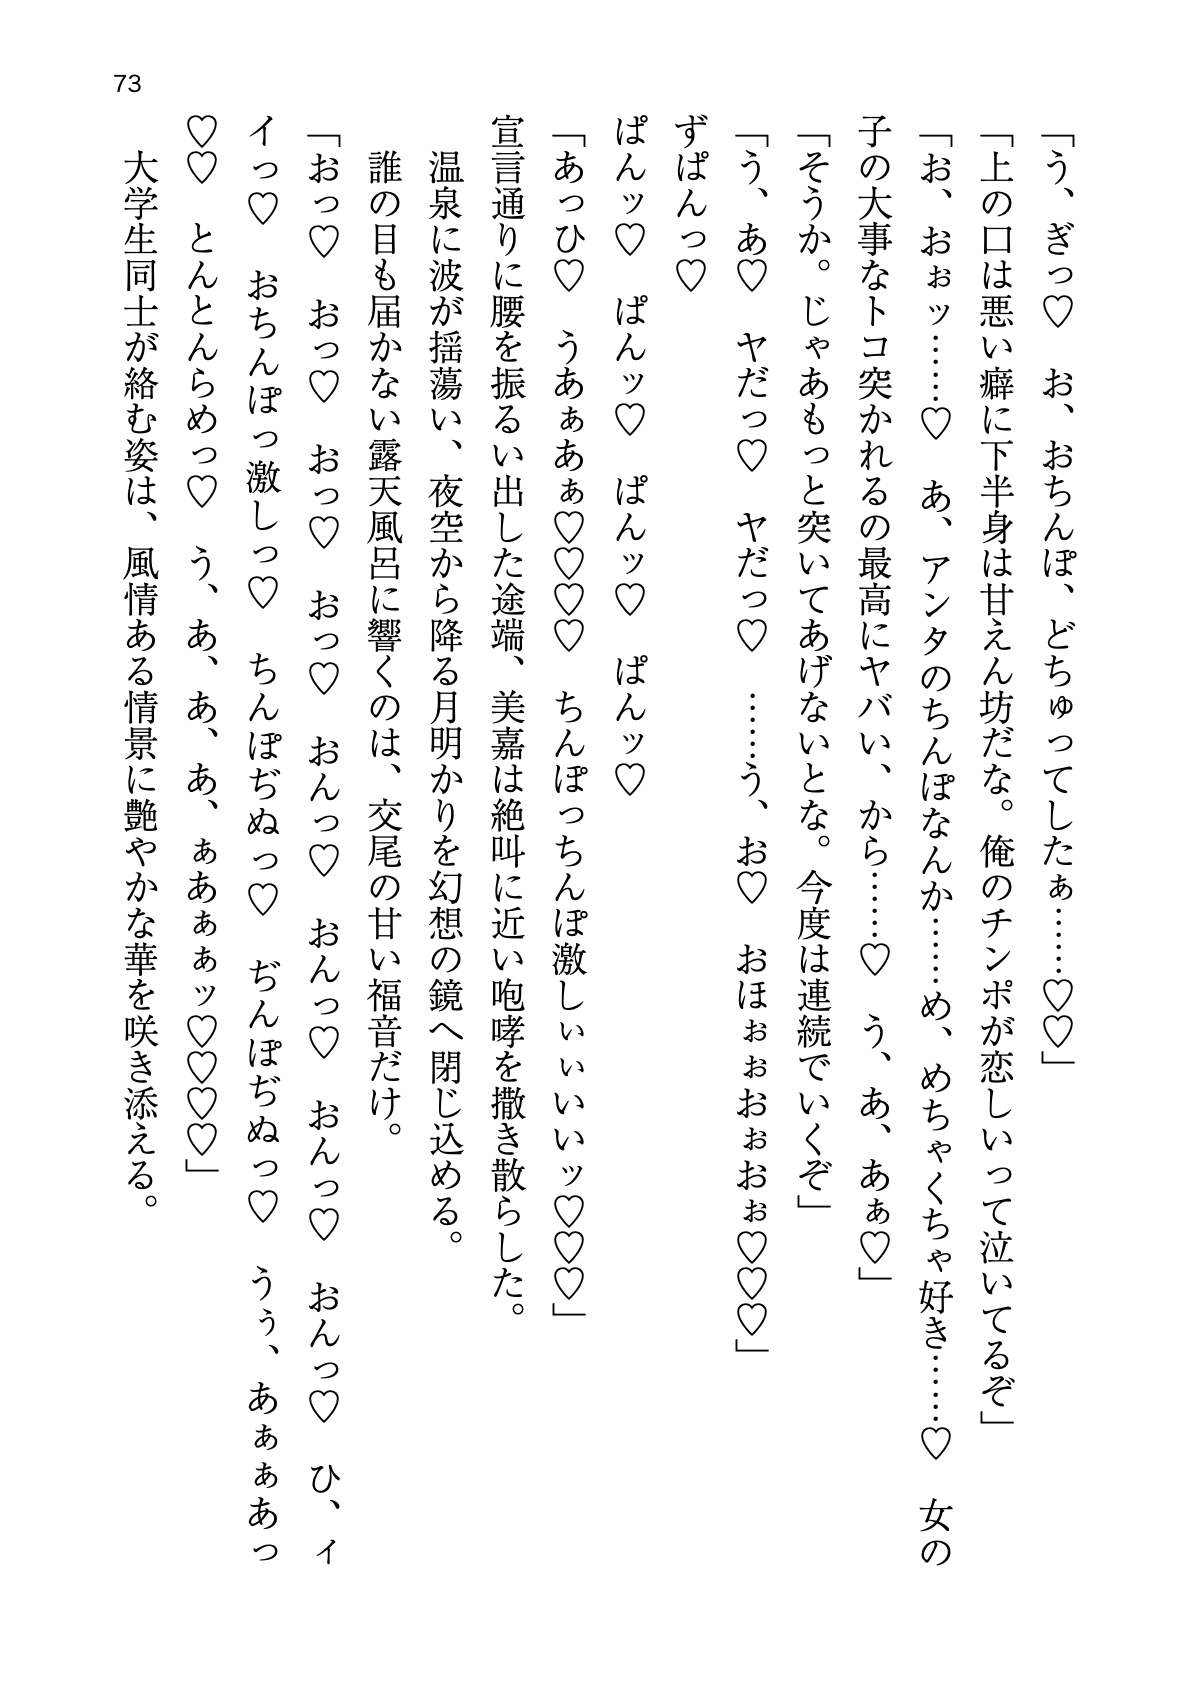 73
「う、ぎっ♡　お、おちんぽ、どちゅってしたぁ……♡♡」
「上の口は悪い癖に下半身は甘えん坊だな。俺のチンポが恋しいって泣いてるぞ」
「お、おぉッ……♡　あ、アンタのちんぽなんか……め、めちゃくちゃ好き……♡　女の
子の大事なトコ突かれるの最高にヤバい、から……♡　う、あ、あぁ♡」
「そうか。じゃあもっと突いてあげないとな。今度は連続でいくぞ」
「う、あ♡　ヤだっ♡　ヤだっ♡　……う、お♡　おほぉぉおぉおぉ♡♡♡」
ずぱんっ♡
ぱんッ♡　ぱんッ♡　ぱんッ♡　ぱんッ♡
「あっひ♡　うあぁあぁ♡♡♡♡　ちんぽっちんぽ激しぃぃいいッ♡♡♡」
宣言通りに腰を振るい出した途端、美嘉は絶叫に近い咆哮を撒き散らした。
　温泉に波が揺蕩い、夜空から降る月明かりを幻想の鏡へ閉じ込める。
　誰の目も届かない露天風呂に響くのは、交尾の甘い福音だけ。
「おっ♡　おっ♡　おっ♡　おっ♡　おんっ♡　おんっ♡　おんっ♡　おんっ♡　ひ、ィ
イっ♡　おちんぽっ激しっ♡　ちんぽぢぬっ♡　ぢんぽぢぬっ♡　うぅ、あぁぁあっ
♡♡　とんとんらめっ♡　う、あ、あ、あ、ぁあぁぁッ♡♡♡♡」
　大学生同士が絡む姿は、風情ある情景に艶やかな華を咲き添える。